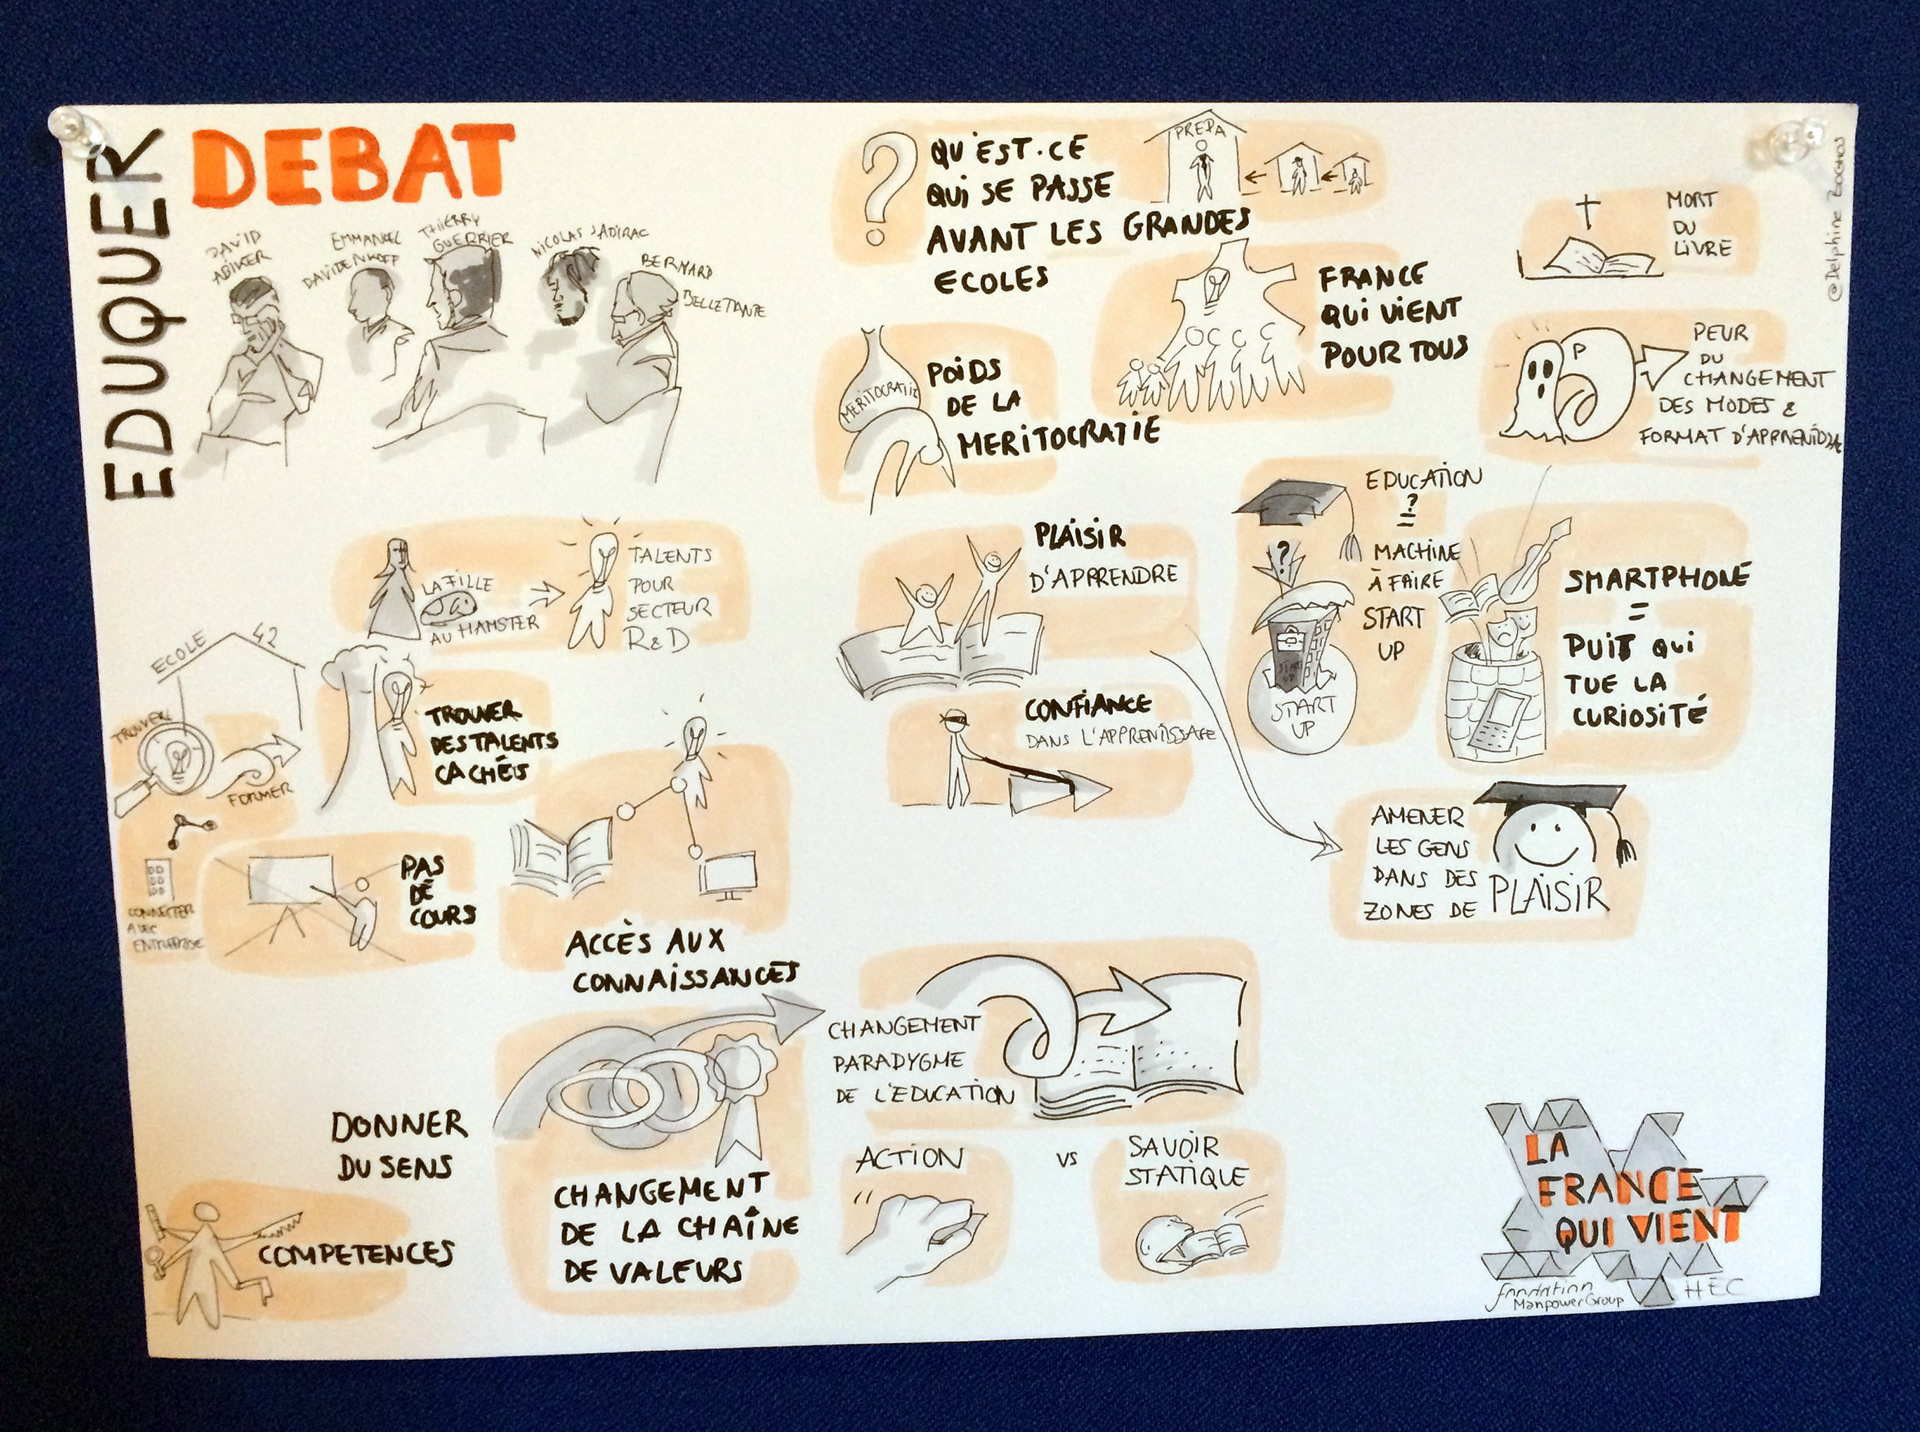 EDUQUER
DEBAT
DAVID
ABIKER
EMMANUEL
DAVIDENKOFF
THIERRY
GUERRIER
NICOLAS SADIRAC
BERNARD
BELLETANTE
?
QU'EST-CE
QUI SE PASSE
AVANT LES GRANDES
ECOLES
PREPA
FRANCE
QUI VIENT
POUR TOUS
MERITOCRATIE
POIDS
DE LA
MERITOCRATIE
MORT
DU
LIVRE
P
PEUR
DU
CHANGEMENT
DES MODES &
FORMAT D'APPRENTI
@Delphine
LA FILLE
AU HAMSTER
TALENTS
POUR
SECTEUR
R&D
ECOLE 42
TROUVER
FORMER
CONNECTER
AVEC
ENTREPRISE
TROUVER
DES TALENTS
CACHÉS
PAS
DE
COURS
ACCÈS AUX
CONNAISSANCES
PLAISIR
D'APPRENDRE
CONFIANCE
DANS L'APPRENTISSAGE
EDUCATION
?
=
MACHINE
À FAIRE
START
UP
?
START
UP
START
UP
SMARTPHONE
=
PUIT QUI
TUE LA
CURIOSITÉ
AMENER
LES GENS
DANS DES
ZONES DE PLAISIR
DONNER
DU SENS
COMPETENCES
CHANGEMENT
DE LA CHAÎNE
DE VALEURS
CHANGEMENT
PARADYGME
DE L'EDUCATION
ACTION
VS
SAVOIR
STATIQUE
LA
FRANCE
QUI VIENT
fondation
ManpowerGroup
HEC